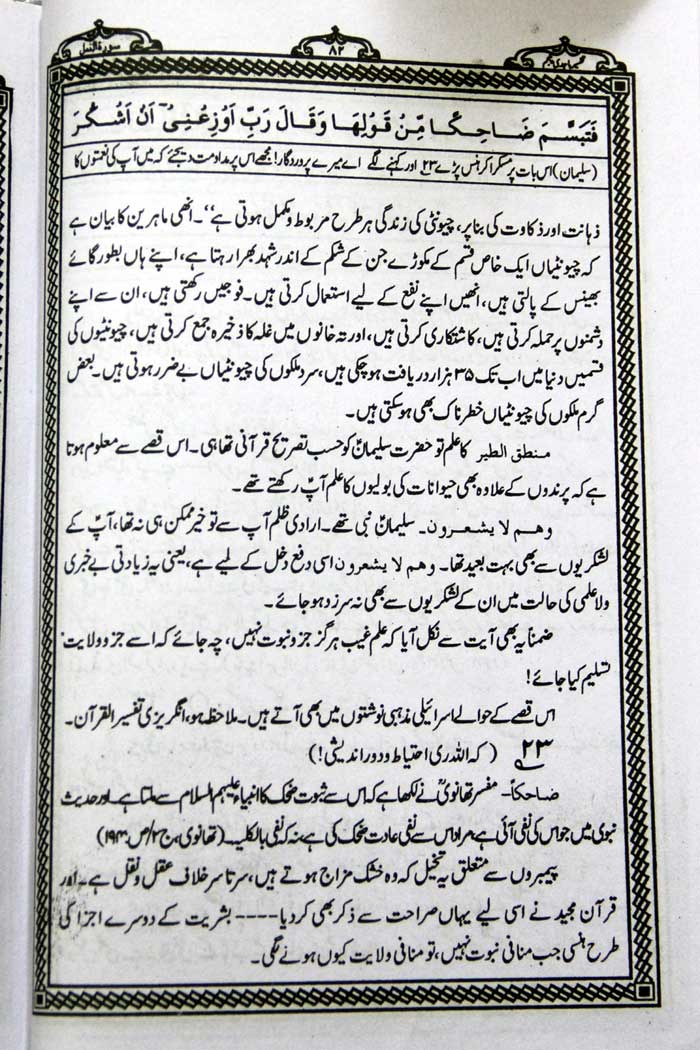 سورۃ النمل
۸۲
تفسیر ماجدی پنجم
فَتَبَسَّمَ ضَاحِكًا مِّنْ قَوْلِهَا وَقَالَ رَبِّ اَوْزِعْنِیْۤ اَنْ اَشْكُرَ
(سلیمان) اس بات پر مسکرا کر ہنس پڑے ۲۳ اور کہنے لگے اے میرے پروردگار! مجھے اس پر مداومت دیجئے کہ میں آپ کی نعمتوں کا
ذہانت اور ذکاوت کی بنا پر، چیونٹی کی زندگی ہر طرح مربوط و مکمل ہوتی ہے‘‘۔ انھی ماہرین کا بیان ہے
کہ چیونٹیاں ایک خاص قسم کے مکوڑے جن کے شکم کے اندر شہد بھرا رہتا ہے، اپنے ہاں بطور گائے
بھینس کے پالتی ہیں، انھیں اپنے نفع کے لیے استعمال کرتی ہیں۔ فوجیں رکھتی ہیں، ان سے اپنے
دشمنوں پر حملہ کرتی ہیں، کاشتکاری کرتی ہیں، اور تہ خانوں میں غلہ کا ذخیرہ جمع کرتی ہیں، چیونٹیوں کی
قسمیں دنیا میں اب تک ۳۵ ہزار دریافت ہو چکی ہیں، سرد ملکوں کی چیونٹیاں بے ضرر ہوتی ہیں۔ بعض
گرم ملکوں کی چیونٹیاں خطرناک بھی ہو سکتی ہیں۔
منطق الطیر کا علم تو حضرت سلیمانؑ کو حسب تصریح قرآنی تھا ہی۔ اس قصے سے معلوم ہوتا
ہے کہ پرندوں کے علاوہ بھی حیوانات کی بولیوں کا علم آپؑ رکھتے تھے۔
وهم لا یشعرون۔ سلیمانؑ نبی تھے۔ ارادی ظلم آپ سے تو خیر ممکن ہی نہ تھا، آپؑ کے
لشکریوں سے بھی بہت بعید تھا۔ وهم لا یشعرون اسی دفع دخل کے لیے ہے، یعنی یہ زیادتی بے خبری
ولا علمی کی حالت میں ان کے لشکریوں سے بھی نہ سرزد ہو جائے۔
ضمناً یہ بھی آیت سے نکل آیا کہ علم غیب ہرگز جزو نبوت نہیں، چہ جائے کہ اسے جزو ولایت
تسلیم کیا جائے!
اس قصے کے حوالے اسرائیلی مذہبی نوشتوں میں بھی آتے ہیں۔ ملاحظہ ہو، انگریزی تفسیر القرآن۔
۲۳ (کہ اللہ ری احتیاط و دور اندیشی!)
ضاحكاً۔ مفسر تھانویؒ نے لکھا ہے کہ اس سے ثبوت ضحک کا انبیاء علیہم السلام سے ملتا ہے۔ اور حدیث
نبوی میں جو اس کی نفی آئی ہے، مراد اس سے نفی عادت ضحک کی ہے، نہ کہ نفی بالکلیہ۔ (تھانوی، ج۲/ص۱۹۳۰)
پیمبروں سے متعلق یہ تخیل کہ وہ خشک مزاج ہوتے ہیں، سرتاسر خلاف عقل و نقل ہے۔ اور
قرآن مجید نے اسی لیے یہاں صراحت سے ذکر بھی کر دیا---- بشریت کے دوسرے اجزا کی
طرح ہنسی جب منافی نبوت نہیں، تو منافی ولایت کیوں ہونے لگی۔